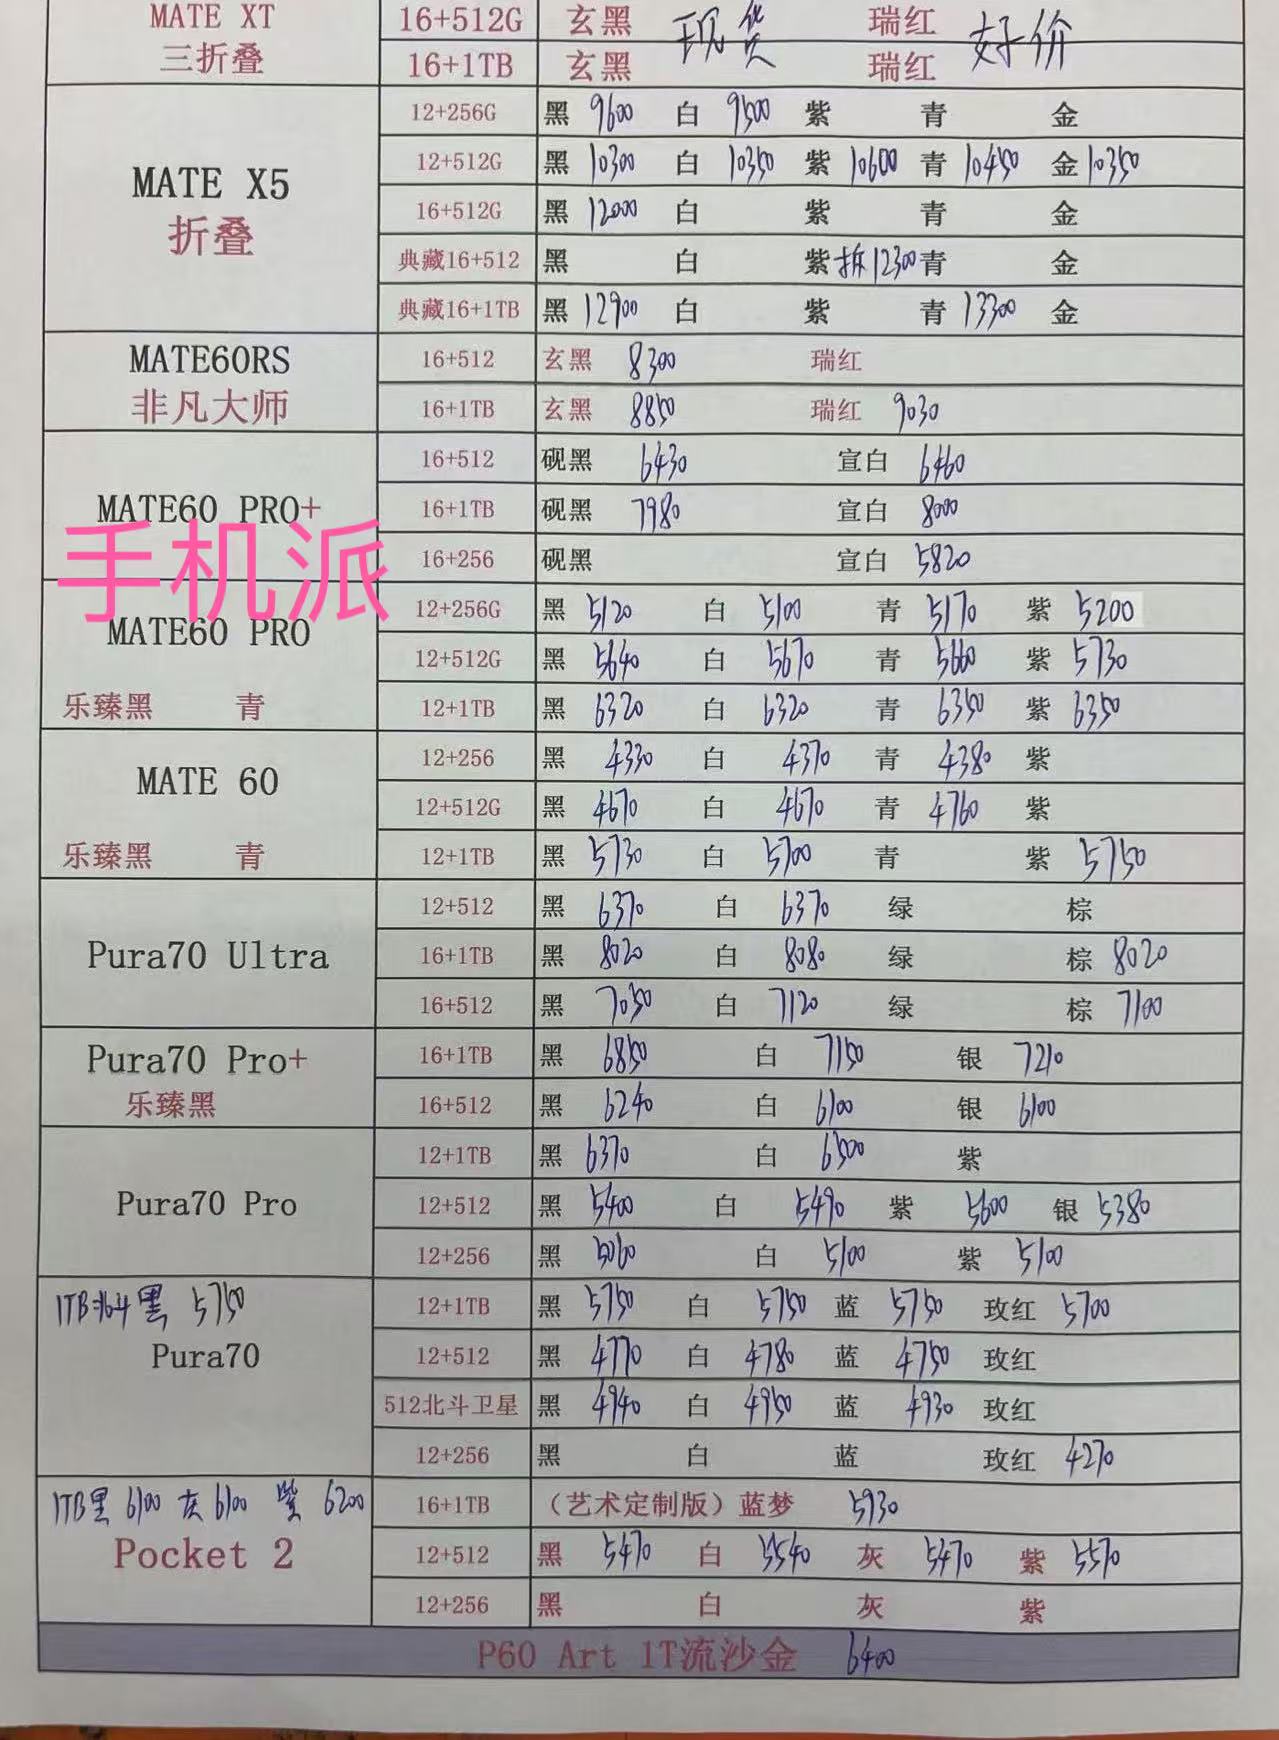 MATE XT 16+512G 玄黑 现货 瑞红 好价
三折叠 16+1TB 玄黑 瑞红
12+256G 黑 9600 白 9500 紫 青 金
MATE X5 12+512G 黑 10300 白 10350 紫 10600 青 10450 金 10350
折叠 16+512G 黑 12000 白 紫 青 金
典藏16+512 黑 白 紫 拆12300 青 金
典藏16+1TB 黑 12900 白 紫 青 13300 金
MATE60RS 16+512 玄黑 8300 瑞红
非凡大师 16+1TB 玄黑 8850 瑞红 9030
16+512 砚黑 6430 宣白 6460
MATE60 PRO+ 16+1TB 砚黑 7980 宣白 8000
手机派
16+256 砚黑 宣白 5820
12+256G 黑 5120 白 5100 青 5170 紫 5200
MATE60 PRO 12+512G 黑 5640 白 5670 青 5660 紫 5730
乐臻黑 青 12+1TB 黑 6320 白 6320 青 6350 紫 6350
12+256 黑 4330 白 4370 青 4380 紫
MATE 60 12+512G 黑 4670 白 4670 青 4760 紫
乐臻黑 青 12+1TB 黑 5730 白 5700 青 紫 5750
12+512 黑 6370 白 6370 绿 棕
Pura70 Ultra 16+1TB 黑 8020 白 8080 绿 棕 8020
16+512 黑 7050 白 7120 绿 棕 7100
Pura70 Pro+ 16+1TB 黑 6850 白 7150 银 7210
乐臻黑 16+512 黑 6240 白 6100 银 6100
12+1TB 黑 6370 白 6500 紫
Pura70 Pro 12+512 黑 5400 白 5490 紫 5600 银 5380
12+256 黑 5060 白 5100 紫 5100
1TB北斗黑 5750 12+1TB 黑 5750 白 5750 蓝 5750 玫红 5700
Pura70 12+512 黑 4770 白 4780 蓝 4750 玫红
512北斗卫星 黑 4940 白 4950 蓝 4930 玫红
12+256 黑 白 蓝 玫红 4270
1TB黑 6100 灰 6100 紫 6200 16+1TB (艺术定制版)蓝梦 5930
Pocket 2 12+512 黑 5470 白 5540 灰 5470 紫 5570
12+256 黑 白 灰 紫
P60 Art 1T流沙金 6400